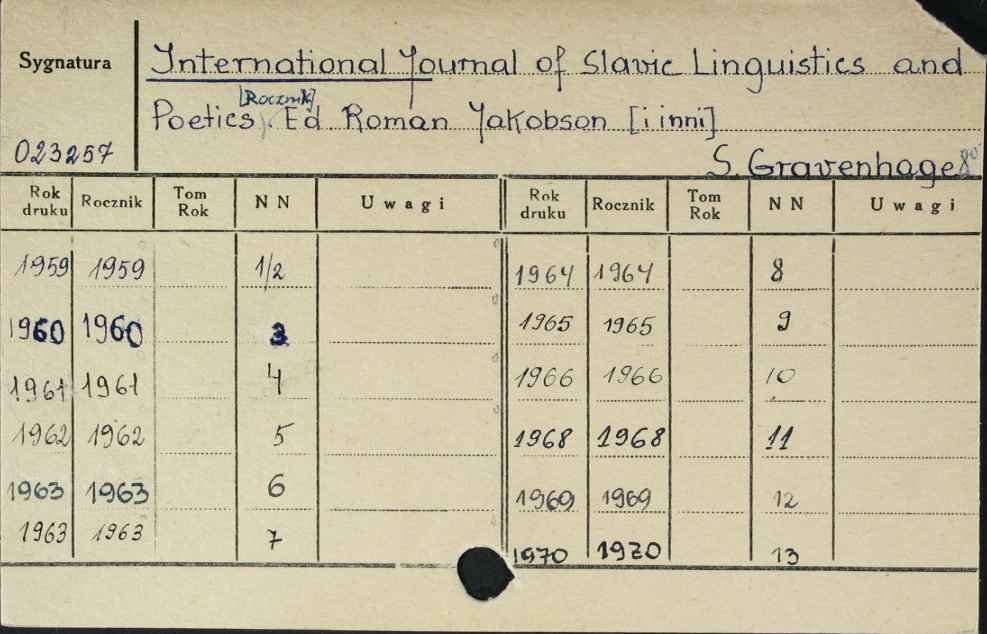 Sygnatura
International Journal of Slavic Linguistics and
[Rocznik]
Poetics. Ed Roman Jakobson [i inni]
023257
S. Gravenhage 8°
Rok druku Rocznik Tom Rok NN Uwagi Rok druku Rocznik Tom Rok NN Uwagi
1959 1959 1/2 1964 1964 8
1960 1960 3 1965 1965 9
1961 1961 4 1966 1966 10
1962 1962 5 1968 1968 11
1963 1963 6 1969 1969 12
1963 1963 7 1970 1970 13